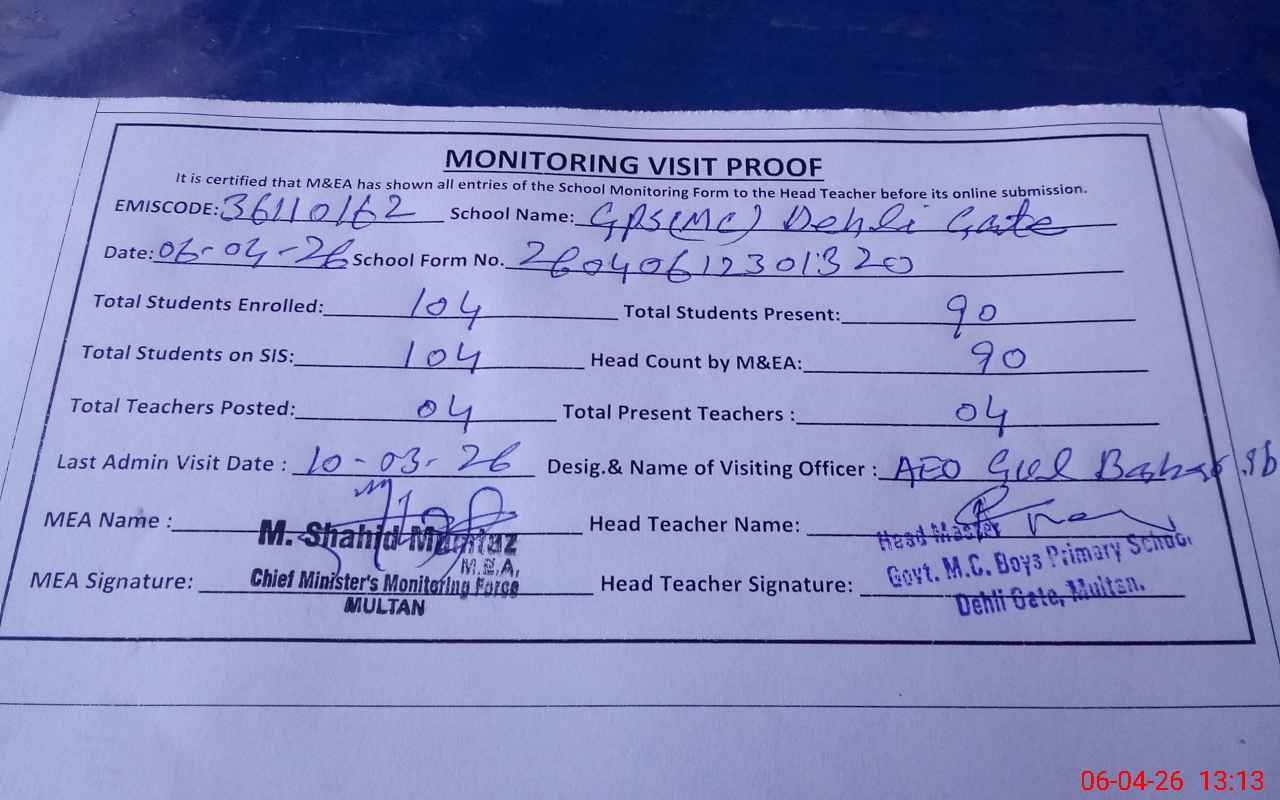 MONITORING VISIT PROOF
It is certified that M&EA has shown all entries of the School Monitoring Form to the Head Teacher before its online submission.
EMISCODE: 36110162 School Name: GPS(MC) Dehli Gate
Date: 06-04-26 School Form No. 26040612301320
Total Students Enrolled: 104 Total Students Present: 90
Total Students on SIS: 104 Head Count by M&EA: 90
Total Teachers Posted: 04 Total Present Teachers : 04
Last Admin Visit Date : 10-03-26 Desig.& Name of Visiting Officer : AEO Gul
MEA Name : Head Teacher Name:
M. Shahid Head Master
M.E.A, Govt. M.C. Boys Primary School
MEA Signature: Chief Minister's Monitoring Force Head Teacher Signature:
MULTAN Dehli Gate, Multan.
06-04-26 13:13